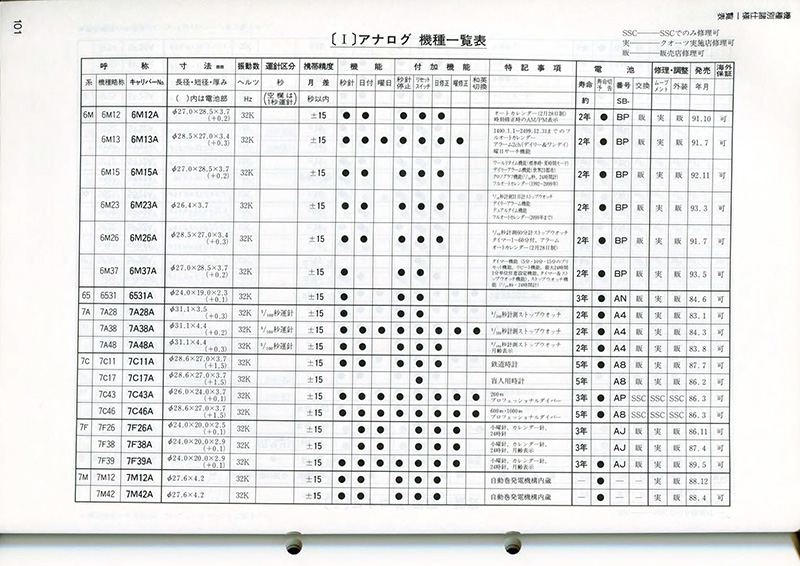 101
機種別諸仕様一覧表
〔I〕アナログ 機種一覧表
SSC――SSCでのみ修理可
実――クオーツ実施店修理可
販――販売店修理可
呼称 寸法 mm 振動数 運針区分 携帯精度 機能 付加機能 特記事項 電池 修理・調整 発売 海外保証
系 機種略称 キャリバーNo. 長径・短径・厚み ヘルツ 秒 月差 秒針 日付 曜日 秒針停止 リセットスイッチ 日修正 曜修正 和英切換 寿命 寿命切予告 番号 交換 ムーブメント 外装 年月
( )内は電池部 Hz (空欄は1秒運針) 秒以内 約 SB-
6M 6M12 6M12A φ27.0×28.5×3.7 (+0.2) 32K ±15 ● ● ● ● ● オートカレンダー(2月28日制) 時刻修正時のAM/PM表示 2年 ● BP 販 実 販 91.10 可
6M13 6M13A φ28.5×27.0×3.4 (+0.3) 32K ±15 ● ● ● ● ● ● ● 1400.1.1~2499.12.31までのフルオートカレンダー アラーム2ch(デイリー&ワンデイ) 曜日サーチ機能 2年 ● BP 販 実 販 91.7 可
6M15 6M15A φ27.0×28.5×3.7 (+0.2) 32K ±15 ● ● ● ● ● 2年 ● BP 販 実 販 92.11 可
6M23 6M23A φ26.4×3.7 32K ±15 ● ● ● ● ● デイリーアラーム機能 デュアルタイム機能 2年 ● BP 販 実 販 93.3 可
6M26 6M26A φ28.5×27.0×3.4 (+0.3) 32K ±15 ● ● ● ● ● タイマー1~60分付、アラーム オートカレンダー(2月28日制) 2年 ● BP 販 実 販 91.7 可
6M37 6M37A φ27.0×28.5×3.7 (+0.2) 32K ±15 ● ● ● 2年 ● BP 販 実 販 93.5 可
65 6531 6531A φ24.0×19.0×2.3 (+0.1) 32K ±15 ● ● ● 3年 ● AN 販 実 販 84.6 可
7A 7A28 7A28A φ31.1×3.5 (+0.3) 32K 1/100秒運針 ±15 ● ● ● 秒計測ストップウオッチ 2年 ● A4 販 実 販 83.1 可
7A38 7A38A φ31.1×4.4 (+0.2) 32K 1/100秒運針 ±15 ● ● ● ● ● ● ● ● 秒計測ストップウオッチ 2年 ● A4 販 実 販 84.3 可
7A48 7A48A φ31.1×4.4 (+0.3) 32K 1/100秒運針 ±15 ● ● ● ● ● 秒計測ストップウオッチ 月齢表示 2年 ● A4 販 実 販 83.8 可
7C 7C11 7C11A φ28.6×27.0×3.7 (+1.5) 32K ±15 ● ● ● 鉄道時計 5年 ● A8 販 実 販 87.7 可
7C17 7C17A φ28.6×27.0×3.7 (+1.5) 32K ±15 ● 盲人用時計 5年 A8 販 実 販 86.2 可
7C43 7C43A φ26.0×24.0×3.7 (+0.1) 32K ±15 ● ● ● ● ● ● ● ● 200m プロフェッショナルダイバー 3年 ● AP SSC SSC SSC 86.3 可
7C46 7C46A φ28.6×27.0×3.7 (+1.5) 32K ±15 ● ● ● ● ● ● ● ● 600m・1000m プロフェッショナルダイバー 5年 ● A8 SSC SSC SSC 86.3 可
7F 7F26 7F26A φ24.0×20.0×2.5 (+0.1) 32K ±15 ● ● ● ● ● 小曜針、カレンダー針、24時針 3年 AJ 販 実 販 86.11 可
7F38 7F38A φ24.0×20.0×2.9 (+0.1) 32K ±15 ● ● ● ● ● 小曜針、カレンダー針、24時針、月齢表示 3年 AJ 販 実 販 87.4 可
7F39 7F39A φ24.0×20.0×2.9 (+0.1) 32K ±15 ● ● ● ● ● ● ● 小曜針、カレンダー針、24時針、月齢表示 3年 ● AJ 販 実 販 89.5 可
7M 7M12 7M12A φ27.6×4.2 32K ±15 ● ● ● ● ● 自動巻発電機構内蔵 — ● — — 実 販 88.12
7M42 7M42A φ27.6×4.2 32K ±15 ● ● ● ● ● 自動巻発電機構内蔵 — ● — — 実 販 88.4 可